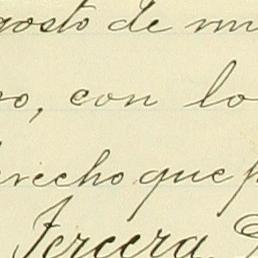 agosto de mi
no, con lo
derecho que p
Tercera.